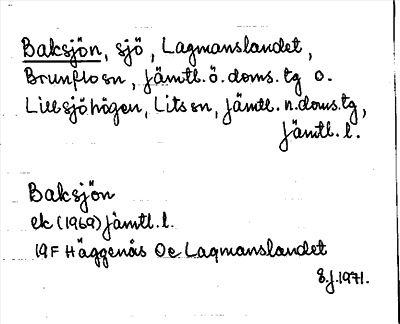 Baksjön, sjö, Lagmanslandet,
Brunflo sn, Jämtl.ö.doms.tg o.
Lillsjöhögen, Lits sn, Jämtl.n.doms.tg,
Jämtl.l.
Baksjön
ek (1969) Jämtl.l.
19F Häggenås Öe Lagmanslandet
1971.